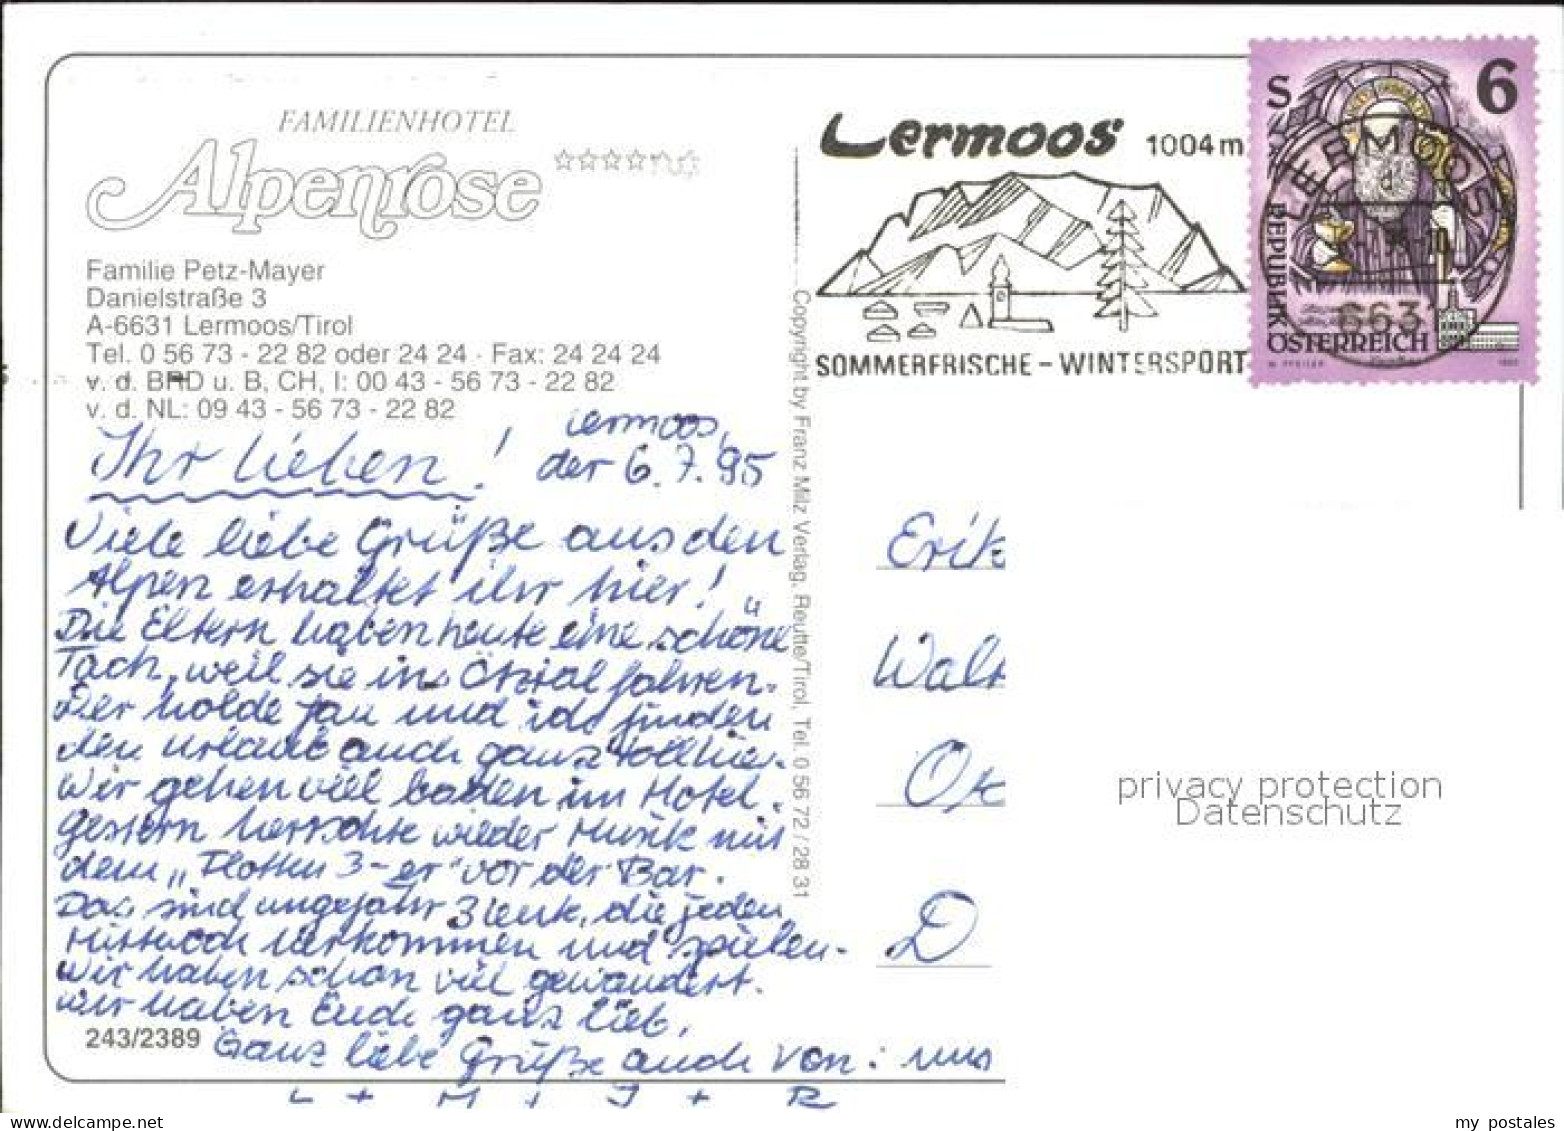 FAMILIENHOTEL
Alpenrose
Familie Petz-Mayer
Danielstraße 3
A-6631 Lermoos/Tirol
Tel. 0 56 73 - 22 82 oder 24 24 · Fax: 24 24 24
v. d. BRD u. B, CH, I: 00 43 - 56 73 - 22 82
v. d. NL: 09 43 - 56 73 - 22 82
Lermoos 1004 m
SOMMERFRISCHE - WINTERSPORT
S 6
REPUBLIK
ÖSTERREICH
LERMOOS
663
Lermoos,
der 6.7.95
Ihr lieben!
Viele liebe Grüße aus den
Alpen erhaltet ihr hier!
Die Eltern haben heute eine schöne
Tach, weil sie ins Ötztal fahren.
Der holde Jan und ich finden
den Urlaub auch ganz toll hier.
Wir gehen viel baden im Hotel.
gestern herrschte wieder Musik mit
dem „Flotten 3-er" vor der Bar.
Das sind ungefähr 3 Leute, die jeden
Mittwoch herkommen und spielen.
Wir haben schon viel gewandert.
Wir haben Euch ganz lieb,
Ganz liebe Grüße auch von: uns
L + M + J + R
243/2389
Copyright by Franz Milz Verlag, Reutte/Tirol, Tel. 0 56 72 / 28 31
Erik
Walt
D
privacy protection
Datenschutz
my postales